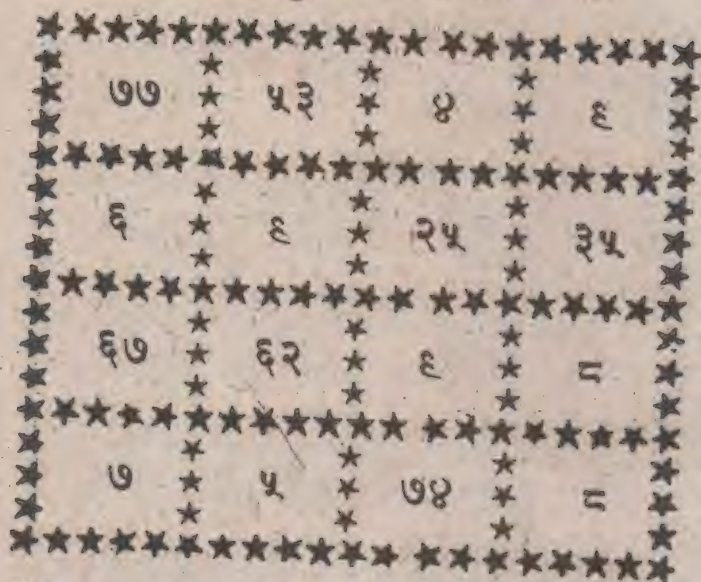 ७७ ५३ ४ ९
६ ९ २५ ३५
६७ ६२ ९ ८
७ ५ ७४ ८